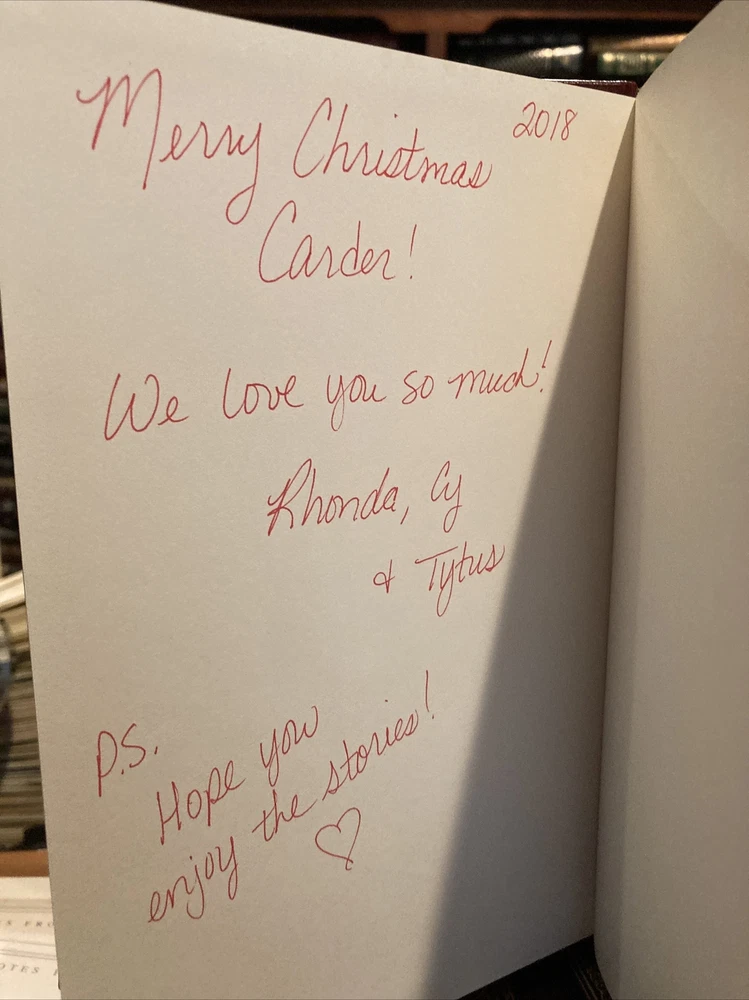 2018
Merry Christmas
Carder!
We love you so much!
Rhonda, Cy
& Tytus
P.S.
Hope you
enjoy the stories!
♡